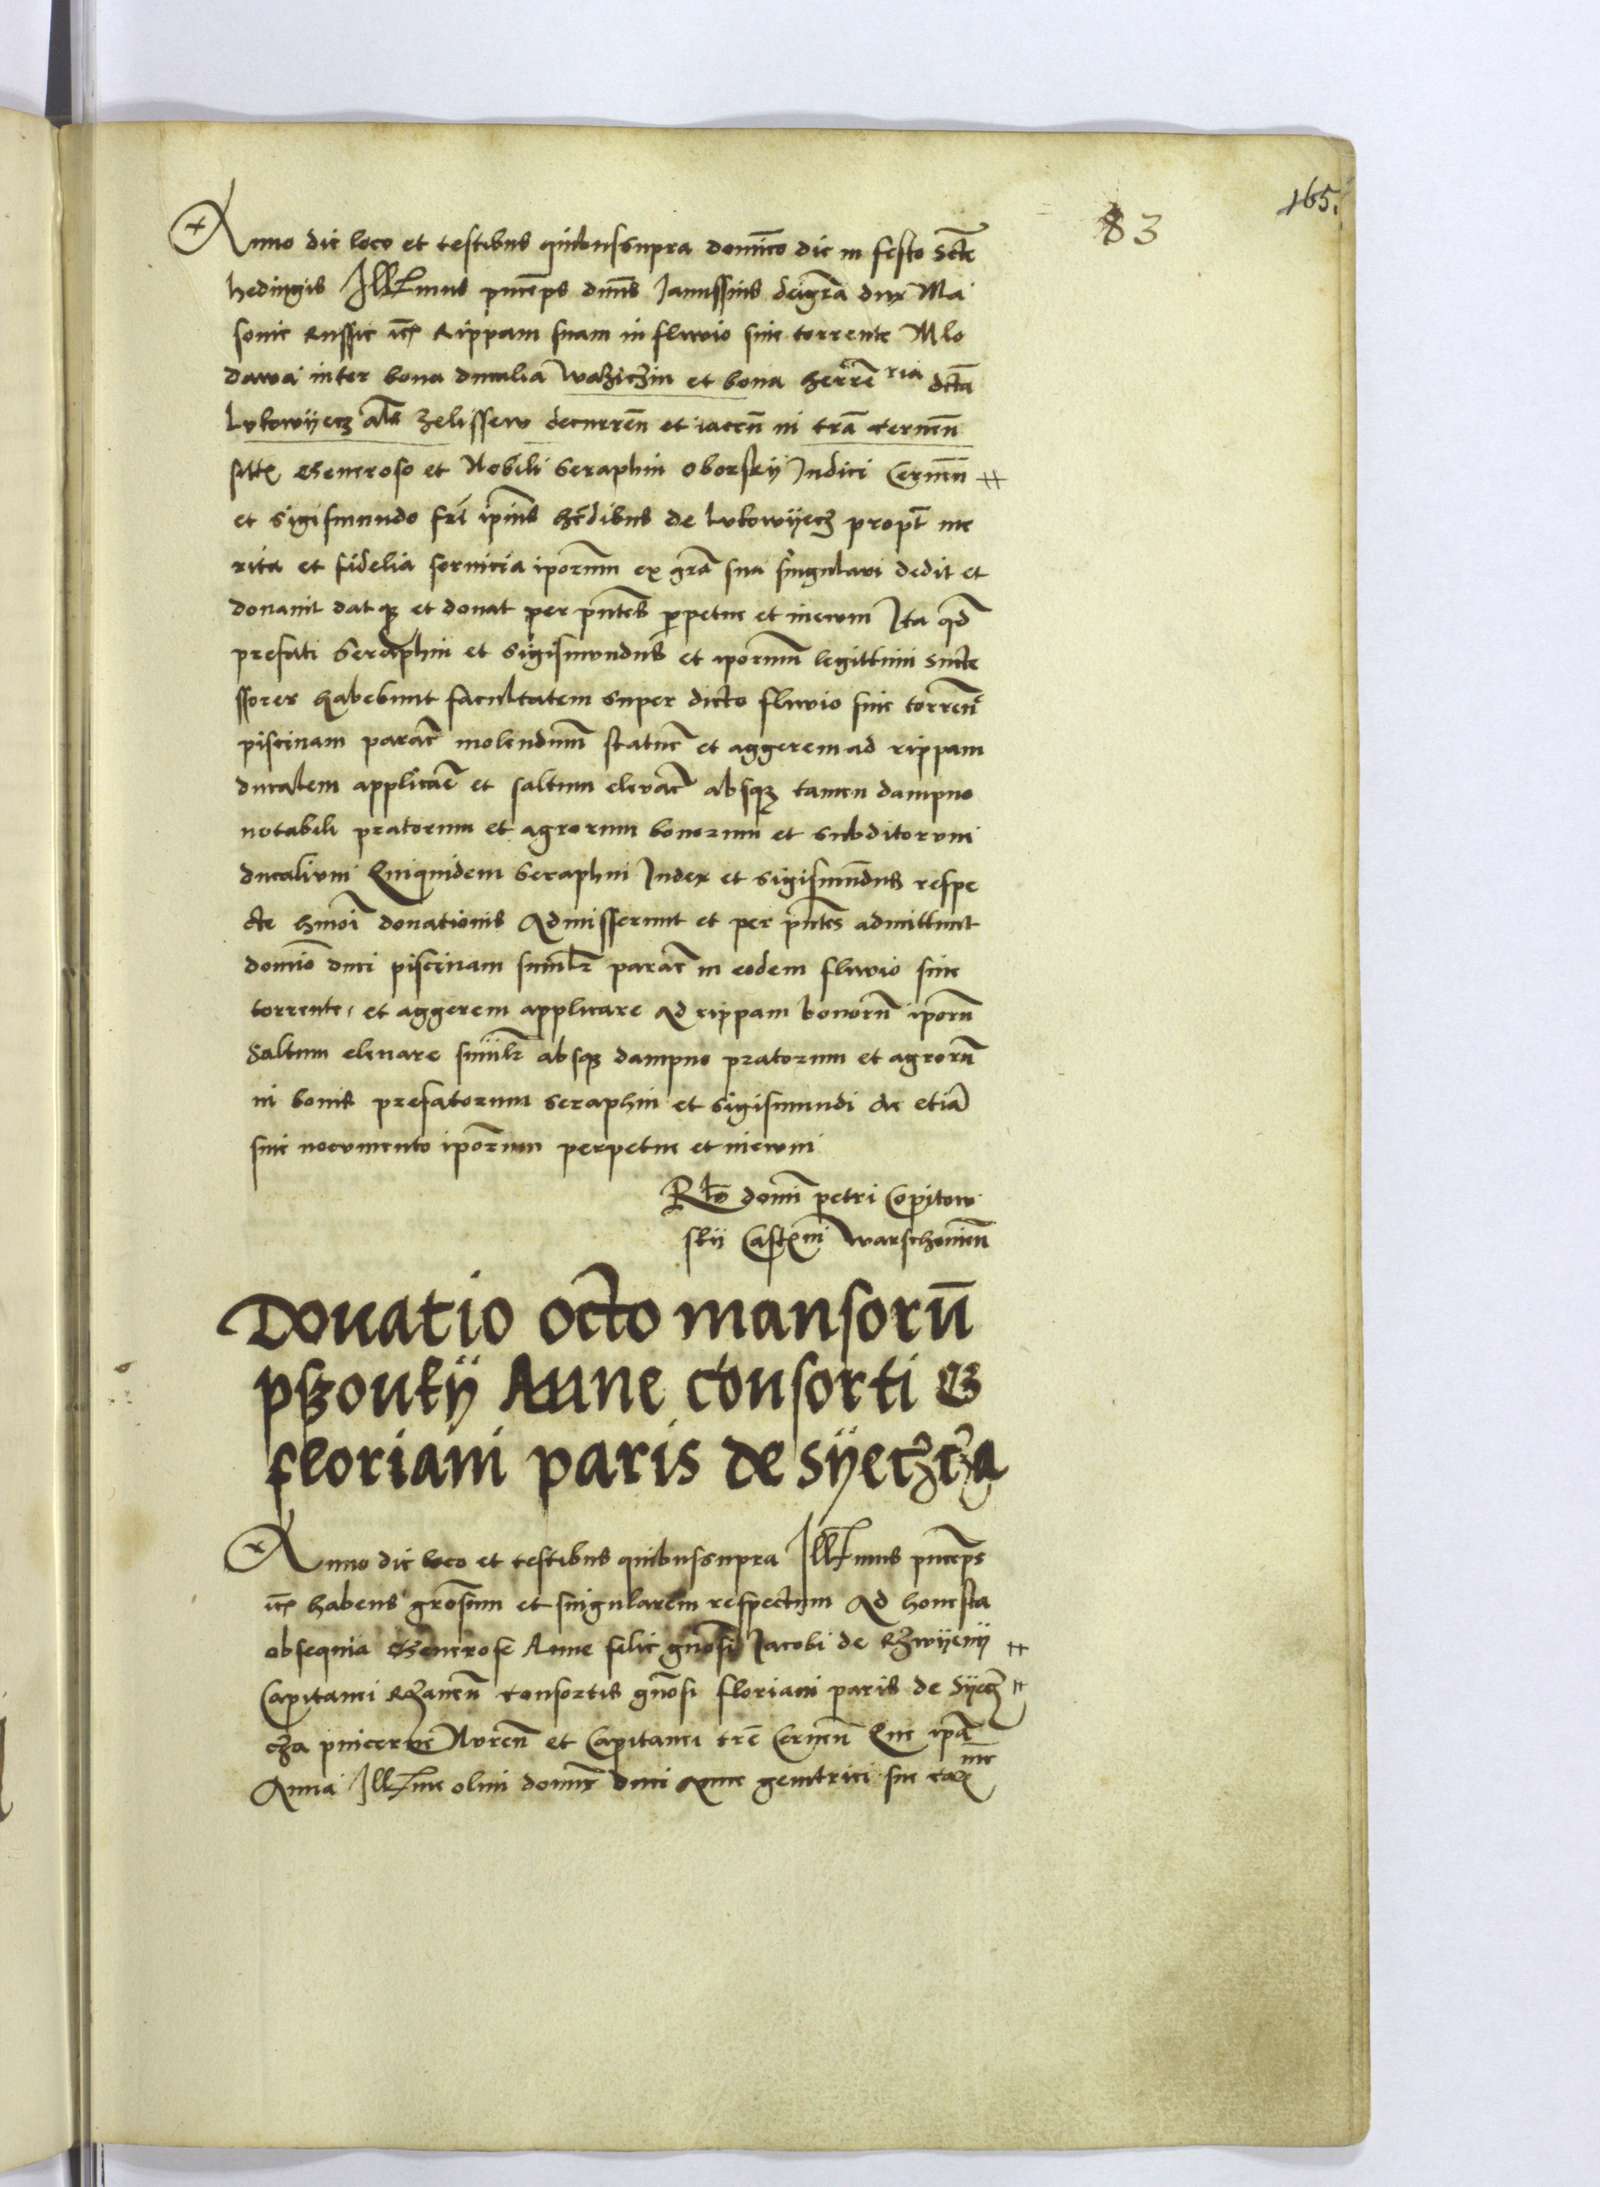 165.
83
Anno die loco et testibus quibussupra dominico die in festo Scte
hedwigis Illmus princeps dnus Janussius deigra dux Ma
sovie Russie etc Rippam suam in fluvio sive torrente Mlo
dawa inter bona ducalia Waziczin et bona herren ria dcta
Lukowyecz als Zelissew decurren et iacen in tra Cernen
sitt Generoso et Nobili Seraphin Oborsky Judici Cernen
et Sigismundo fri ipius hedibus de Lukowyecz propt me
rita et fidelia servicia iporum ex gra sua singulari dedit et
donavit datq et donat per pntes perpetue et inewm Ita qd
prefati Seraphin et Sigismundus et iporum legittimi succe
ssores habebunt facultatem super dicto fluvio sive torren
piscinam parare molendinum statue et aggerem ad rippam
ducalem applicare et saltum elevare absq tamen dampno
notabili pratorum et agrorum bonorum et subditorum
ducalium Quiquidem Seraphin Judex et Sigismundus respe
ctu hmoi donationis Admisserunt et per pntes admittunt
domino duci piscinam similr parare in eodem fluvio sive
torrente et aggerem applicare Ad rippam bonoru iporu
Saltum elevare similr absq dampno pratorum et agroru
in bonis prefatorum Seraphin et Sigismundi ac etia
sine nocumento iporum perpetue et inewm
Rlo domi petri Copitow
skii Castni Warschovien
Donatio octo mansoru
pszonky Anne consorti G
floriani paris de Syeczcza
Anno die loco et testibus quibussupra Illmus princeps
etc habens grosum et singularem respectum Ad honesta
obsequia Generose Anne filie gnosi Jacobi de Rzwyeny
Capitanei Rzanen consortis gnosi floriani paris de Syecz
cza pincerne Nuren et Capitanei tre Cernen Que ipa
Anna Illme olim domine duci Anne genitrici sue cax
me